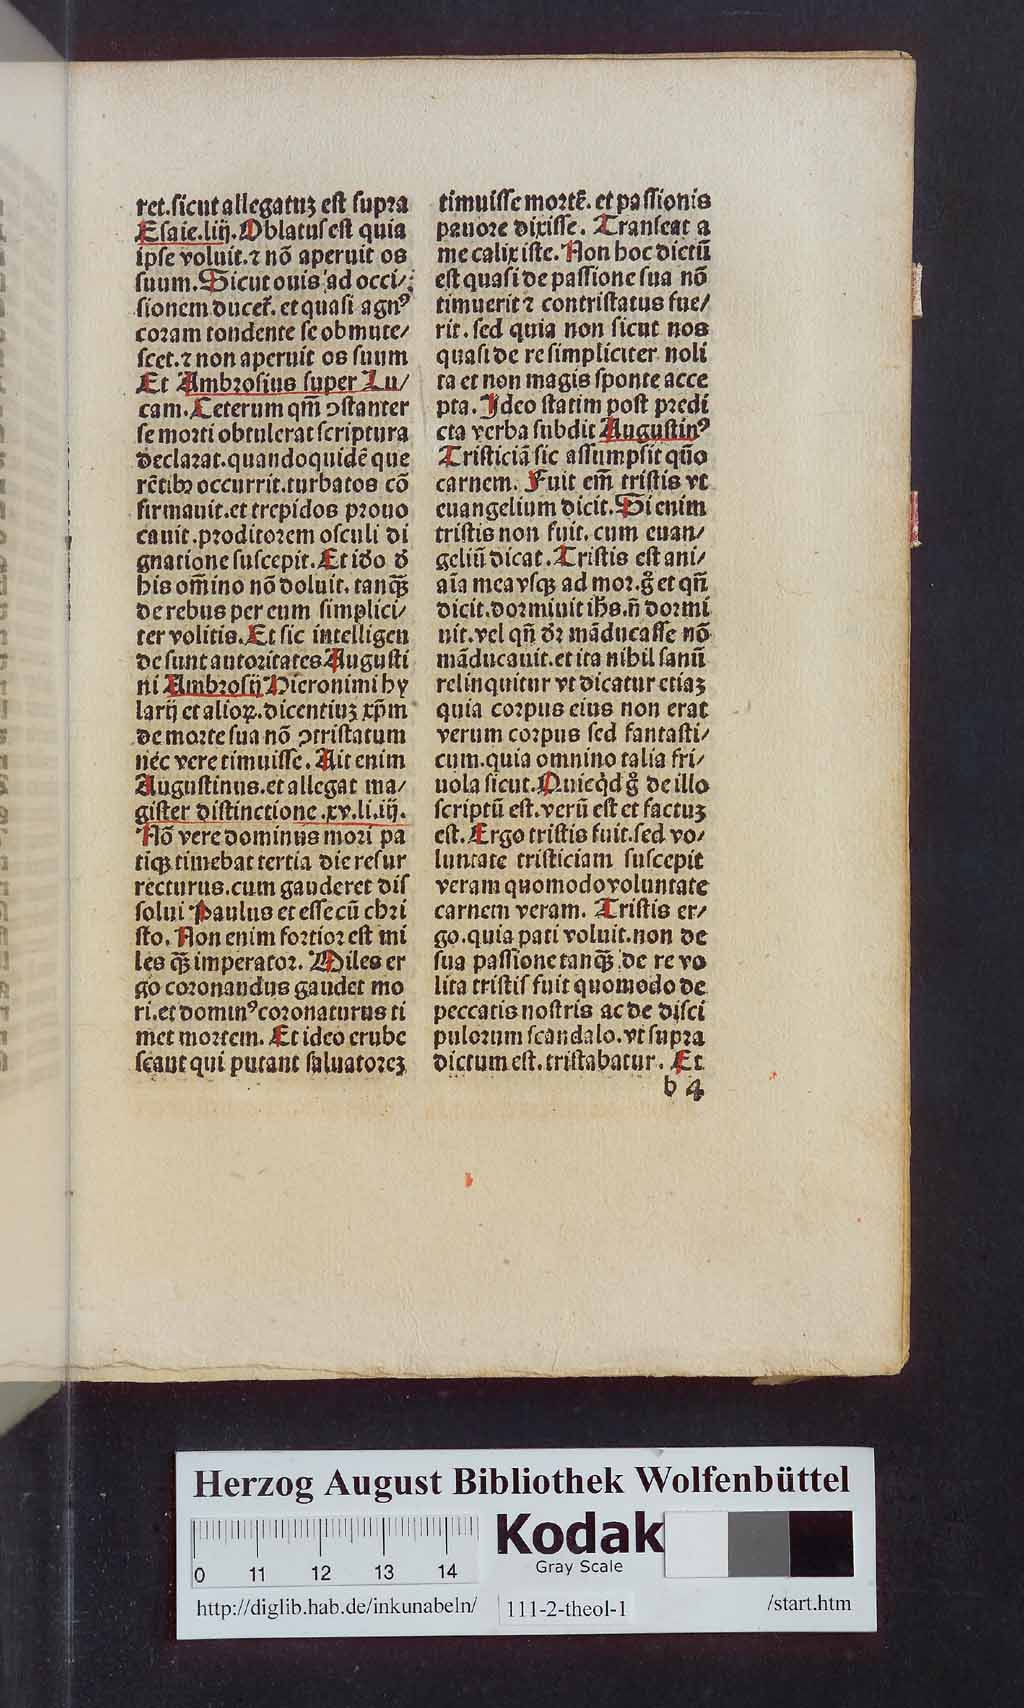 ret.sicut allegatuʒ est supra
Esaie.liij.Oblatus est quia
ipse voluit.⁊ nō aperuit os
suum.Sicut ouis ad occi/
sionem ducet̄. et quasi agnꝰ
coram tondente se obmute/
scet.⁊ non aperuit os suum
Et Ambrosius super Lu/
cam.Ceterum qm̄ ↄstanter
se morti obtulerat scriptura
declarat.quandoquidē que
rētibꝫ occurrit.turbatos cō
firmauit.et trepidos prouo
cauit.proditorem osculi di
gnatione suscepit.Et iďo ď
his om̄ino nō doluit. tanqꝫ̄
de rebus per eum simplici/
ter volitis.Et sic intelligen
de sunt autoritates Augusti
ni Ambrosij Hieronimi hy
larij et alioꝝ.dicentiuʒ xp̄m
de morte sua nō ↄtristatum
nec vere timuisse. Ait enim
Augustinus.et allegat ma/
gister distinctione.xv.li.iij.
Nō vere dominus mori pa
tiqꝫ timebat tertia die resur
recturus.cum gauderet dis
solui Paulus et esse cū chri
sto. Non enim fortior est mi
les qꝫ̄ imperator. Miles er
go coronandus gaudet mo
ri.et dominꝰ coronaturus ti
met mortem. Et ideo erube
scant qui putant saluatoreʒ
timuisse mortē. et passionis
pauore dixisse. Transeat a
me calix iste. Non hoc dictū
est quasi de passione sua nō
timuerit ⁊ contristatus fue/
rit. sed quia non sicut nos
quasi de re simpliciter noli
ta et non magis sponte acce
pta. Ideo statim post predi
cta verba subdit Augustinꝰ
Tristiciā sic assumpsit quo̊
carnem. Fuit em̄ tristis vt
euangelium dicit. Si enim
tristis non fuit. cum euan/
geliū dicat. Tristis est ani/
aīa mea vsqꝫ ad mor.gͦ et qn̄
dicit.dormiuit ihs̄.n̄ dormi
uit.vel qn̄ dꝛ̄ māducasse nō
māducauit.et ita nihil sanū
relinquitur vt dicatur etiaʒ
quia corpus eius non erat
verum corpus sed fantasti/
cum.quia omnino talia fri/
uola sicut.Quicqͥd gͦ de illo
scriptū est.verū est et factuʒ
est. Ergo tristis fuit.sed vo/
luntate tristiciam suscepit
veram quomodo voluntate
carnem veram. Tristis er/
go.quia pati voluit.non de
sua passione tanqꝫ̄ de re vo
lita tristis fuit quomodo de
peccatis nostris ac de disci
pulorum scandalo.vt supra
dictum est.tristabatur. Et
b 4
Herzog August Bibliothek Wolfenbüttel
0 11 12 13 14
Kodak
Gray Scale
http://diglib.hab.de/inkunabeln/
111-2-theol-1
/start.htm